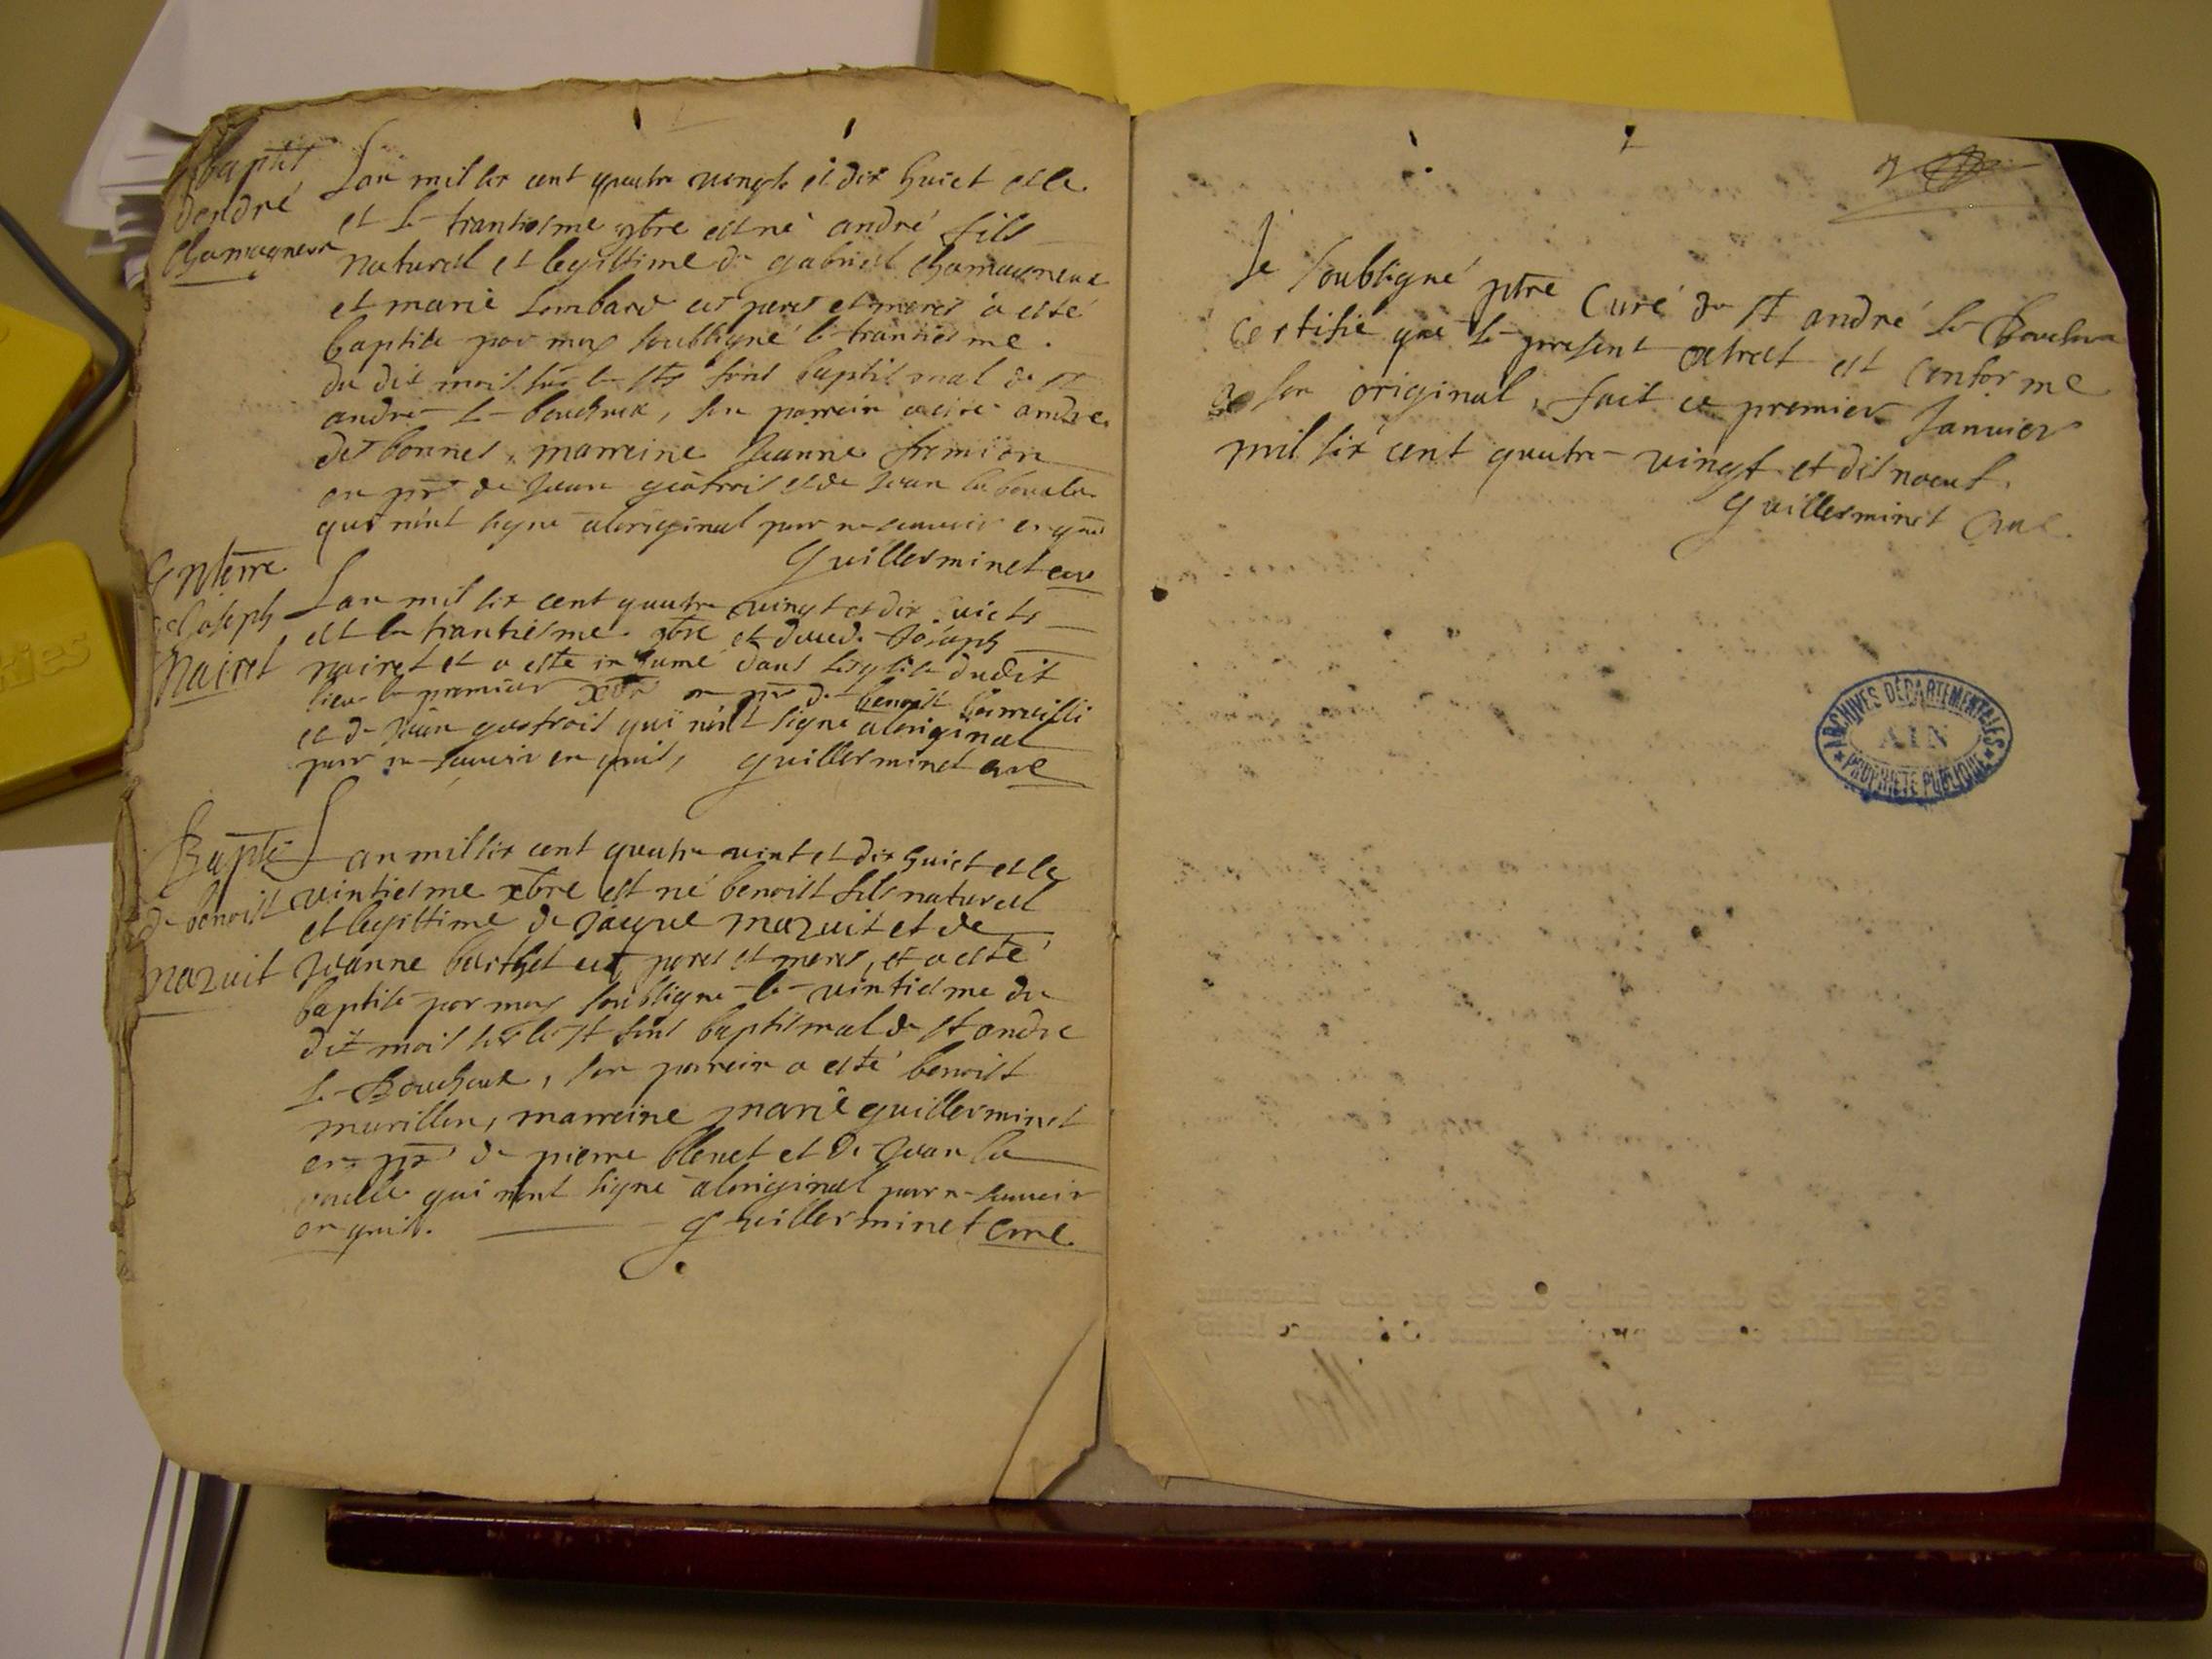 bapte
dandré
Chamagneux
Lan mil six cent quatre vengt et dix huict et le
et le trantiesme 9bre est né andré fils
naturel et legittime de gabriel Chamagneux
et marie Lombard ces peres et meres a esté
baptise par moy soubsigné le trantiesme
du dit mois sur le sts fons baptismal de st
andre le bouchoux, son parrein a este andre
des bonnes, marreine Jeanne fremion
en pre de Jean gatrois et de Jean la boula
qui nont signe a loriginal pour ne scauoir en quis
Guillerminet cure
Enterre
de Joseph
Nairet
Lan mil six cent quatre vingt et dix uict
est le trantiesme 9bre et decede Joseph
nairet et a este inhumé dans leglise dudit
lieu le premier xbre en pre de benoist
et de Jean gastrois qui nont signe a loriginal
pour ne scauoir en quis, guillerminet cure
Bapte
de benoist
mazuit
Lan mil six cent quatre vint et dix huict et le
vintiesme xbre est né benoist fils naturel
et legittime de Jaque mazuit et de
Jeanne berthet ces peres et meres, et a esté
baptise par moy soubsigne le vintiesme du
dit mois sur le st fons baptismal de st andre
le Bouchoux, son parrein a esté benoist
murillon, marreine marie guillerminet
en pre de pierre blenet et de Jean la
boulle qui nont signe a loriginal pour ne scauoir
en quis. Guillerminet cure
2
Je soubsigné ptre Curé de st andré le Bouchoux
certifie que le present extrect est conforme
a son original, fait ce premier Januier
mil six cent quatre vingt et dis noeuf.
Guillerminet Cure.
ARCHIVES DÉPARTEMENTALES
AIN
PROPRIÉTÉ PUBLIQUE